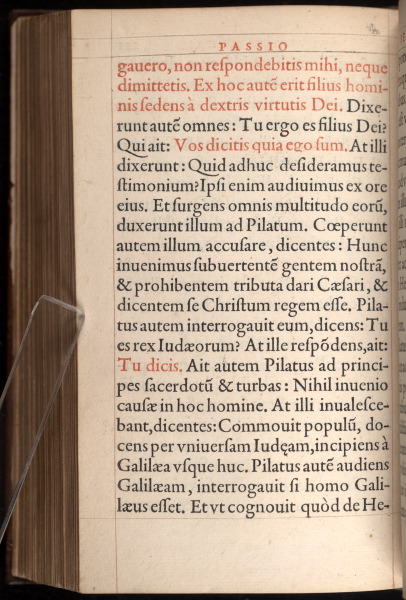 PASSIO
gauero, non reſpondebitis mihi, neque
dimittetis. Ex hoc autē erit filius homi-
nis ſedens à dextris virtutis Dei. Dixe-
runt autē omnes: Tu ergo es filius Dei?
Qui ait: Vos dicitis quia ego ſum. At illi
dixerunt: Quid adhuc deſideramus te-
ſtimonium? Ipſi enim audiuimus ex ore
eius. Et ſurgens omnis multitudo eorū,
duxerunt illum ad Pilatum. Cœperunt
autem illum accuſare, dicentes: Hunc
inuenimus ſubuertentē gentem noſtrā,
& prohibentem tributa dari Cæſari, &
dicentem ſe Chriſtum regem eſſe. Pila-
tus autem interrogauit eum, dicens: Tu
es rex Iudæorum? At ille reſpōdens, ait:
Tu dicis. Ait autem Pilatus ad princi-
pes ſacerdotū & turbas: Nihil inuenio
cauſæ in hoc homine. At illi inualeſce-
bant, dicentes: Commouit populū, do-
cens per vniuerſam Iudęam, incipiens à
Galilæa vſque huc. Pilatus autē audiens
Galilæam, interrogauit ſi homo Gali-
læus eſſet. Et vt cognouit quòd de He-